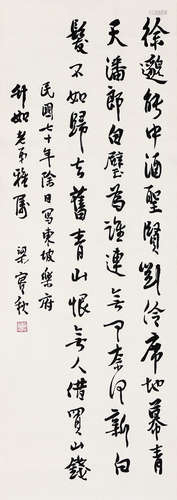 徐邈能中酒聖賢劉伶席地幕青
天潘郎白璧為誰連無可奈何新白
髮不如歸去舊青山恨無人借買山錢
民國七十年除日寫東坡樂府
如老弟雅屬 梁實秋